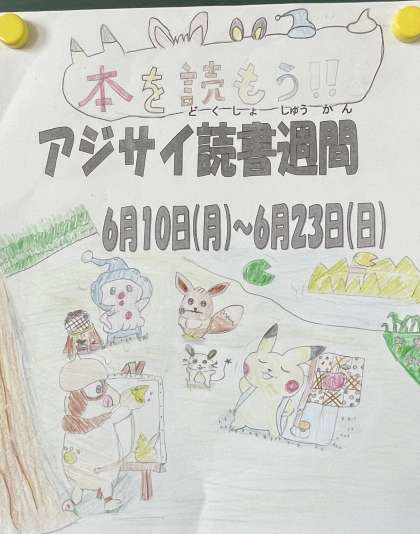 本を読もう!!
どくしょ じゅうかん
アジサイ読書週間
6月10日(月)~6月23日(日)